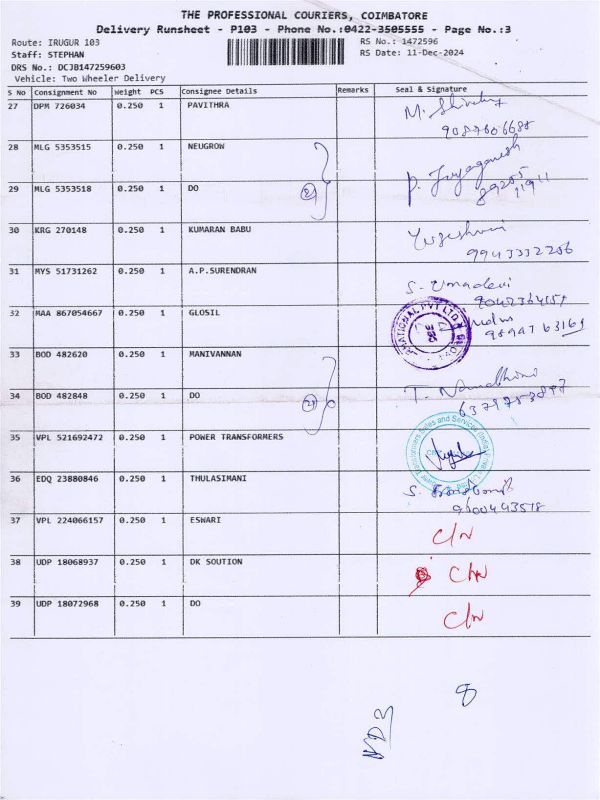 THE PROFESSIONAL COURIERS, COIMBATORE
Delivery Runsheet - P103 - Phone No.:0422-3505555 - Page No.:3
Route: IRUGUR 103 RS No.: 1472596
Staff: STEPHAN RS Date: 11-Dec-2024
DRS No.: DCJB147259603
Vehicle: Two Wheeler Delivery
S No Consignment No Weight PCS Consignee Details Remarks Seal & Signature
27 DPM 726034 0.250 1 PAVITHRA M.
28 MLG 5353515 0.250 1 NEUGROW
29 MLG 5353518 0.250 1 DO 2 P.
30 KRG 270148 0.250 1 KUMARAN BABU
9943332256
31 MYS 51731262 0.250 1 A.P.SURENDRAN S. Umadevi
32 MAA 867054667 0.250 1 GLOSIL
33 BOD 482620 0.250 1 MANIVANNAN
34 BOD 482848 0.250 1 DO 2 T.
35 VPL 521692472 0.250 1 POWER TRANSFORMERS
36 EDQ 23880846 0.250 1 THULASIMANI S.
9600443518
37 VPL 224066157 0.250 1 ESWARI C/N
38 UDP 18068937 0.250 1 DK SOUTION C/N
39 UDP 18072968 0.250 1 DO C/N
8